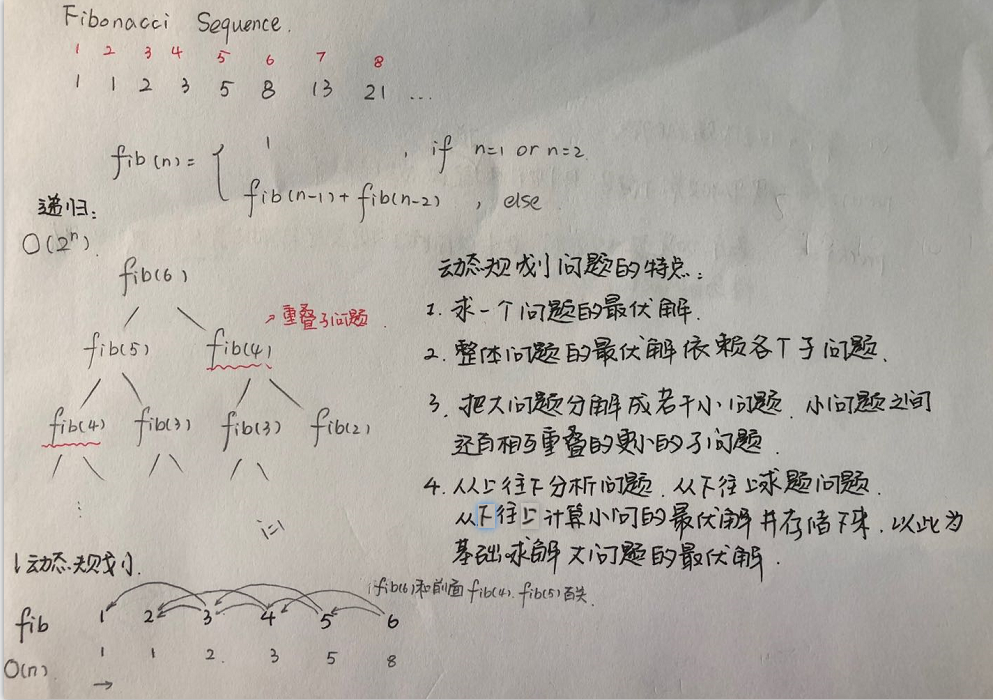 Fibonacci Sequence.
1 2 3 4 5 6 7 8
1 1 2 3 5 8 13 21 ...
fib(n)= { 1 , if n=1 or n=2
fib(n-1)+fib(n-2) , else
递归:
O(2ⁿ)
fib(6)
重叠子问题
fib(5) fib(4)
fib(4) fib(3) fib(3) fib(2)
i=1
动态规划问题的特点:
1. 求一个问题的最优解.
2. 整体问题的最优解依赖各个子问题.
3. 把大问题分解成若干小问题. 小问题之间
还有相互重叠的更小的子问题.
4. 从上往下分析问题. 从下往上求题问题.
从下往上计算小问的最优解并存储下来. 以此为
基础求解大问题的最优解.
动态规划.
fib(6)和前面fib(4). fib(5)有关.
fib 1 2 3 4 5 6
O(n) 1 1 2. 3 5 8
→